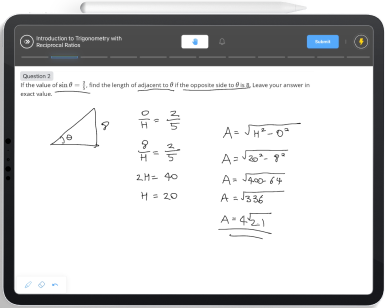 Introduction to Trigonometry with
Reciprocal Ratios
Submit
Question 2
If the value of sin θ = 2/5, find the length of adjacent to θ if the opposite side to θ is 8. Leave your answer in
exact value.
8
θ
O/H = 2/5
8/H = 2/5
2H = 40
H = 20
A = √H² - O²
A = √20² - 8²
A = √400 - 64
A = √336
A = 4√21